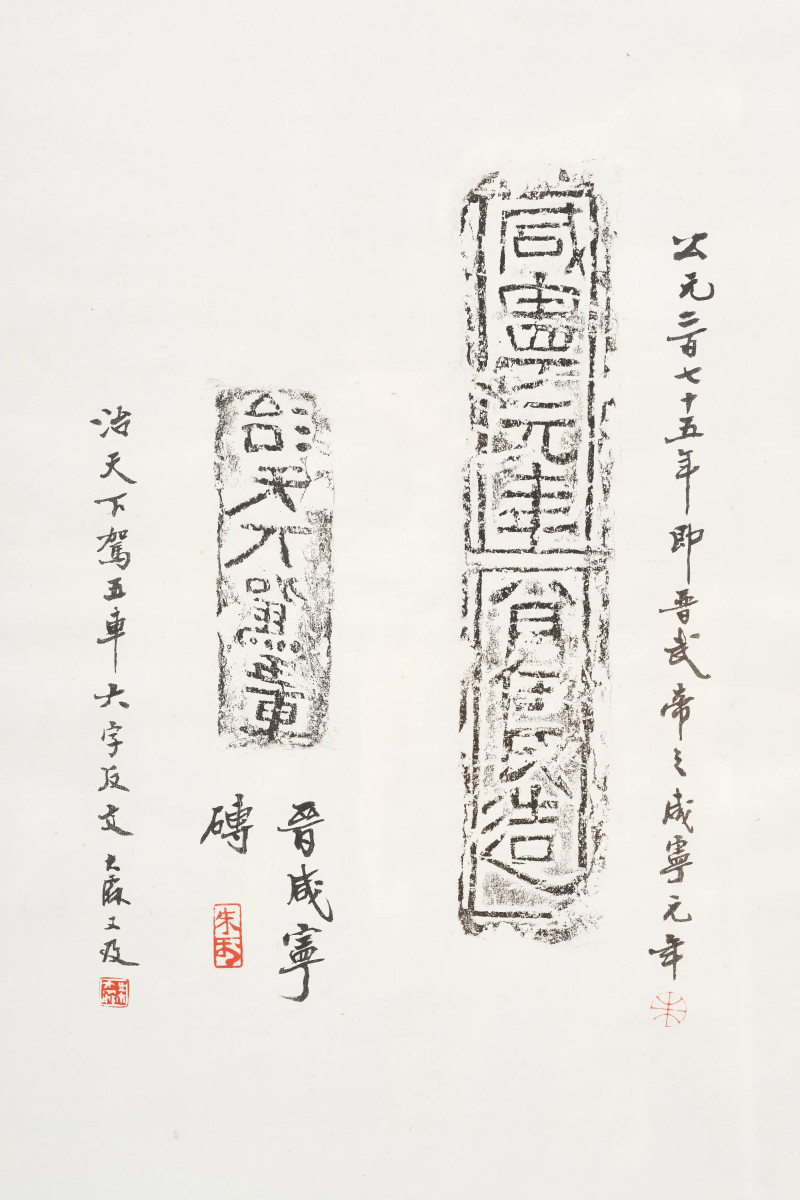 公元二百七十五年即晋武帝之咸寧元年
朱
咸寧元年八月氏造
治天下駕五車
晋咸寧
磚
治天下駕五車六字反文又及